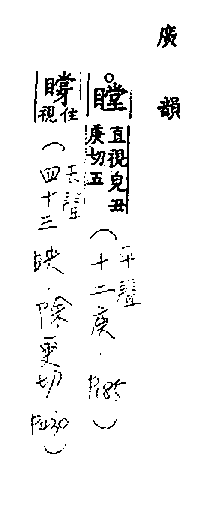 廣韻
○瞠直視皃丑
庚切五
平聲
(十二庚.P185)
住視
去聲
(四十三映.除更切 P430)